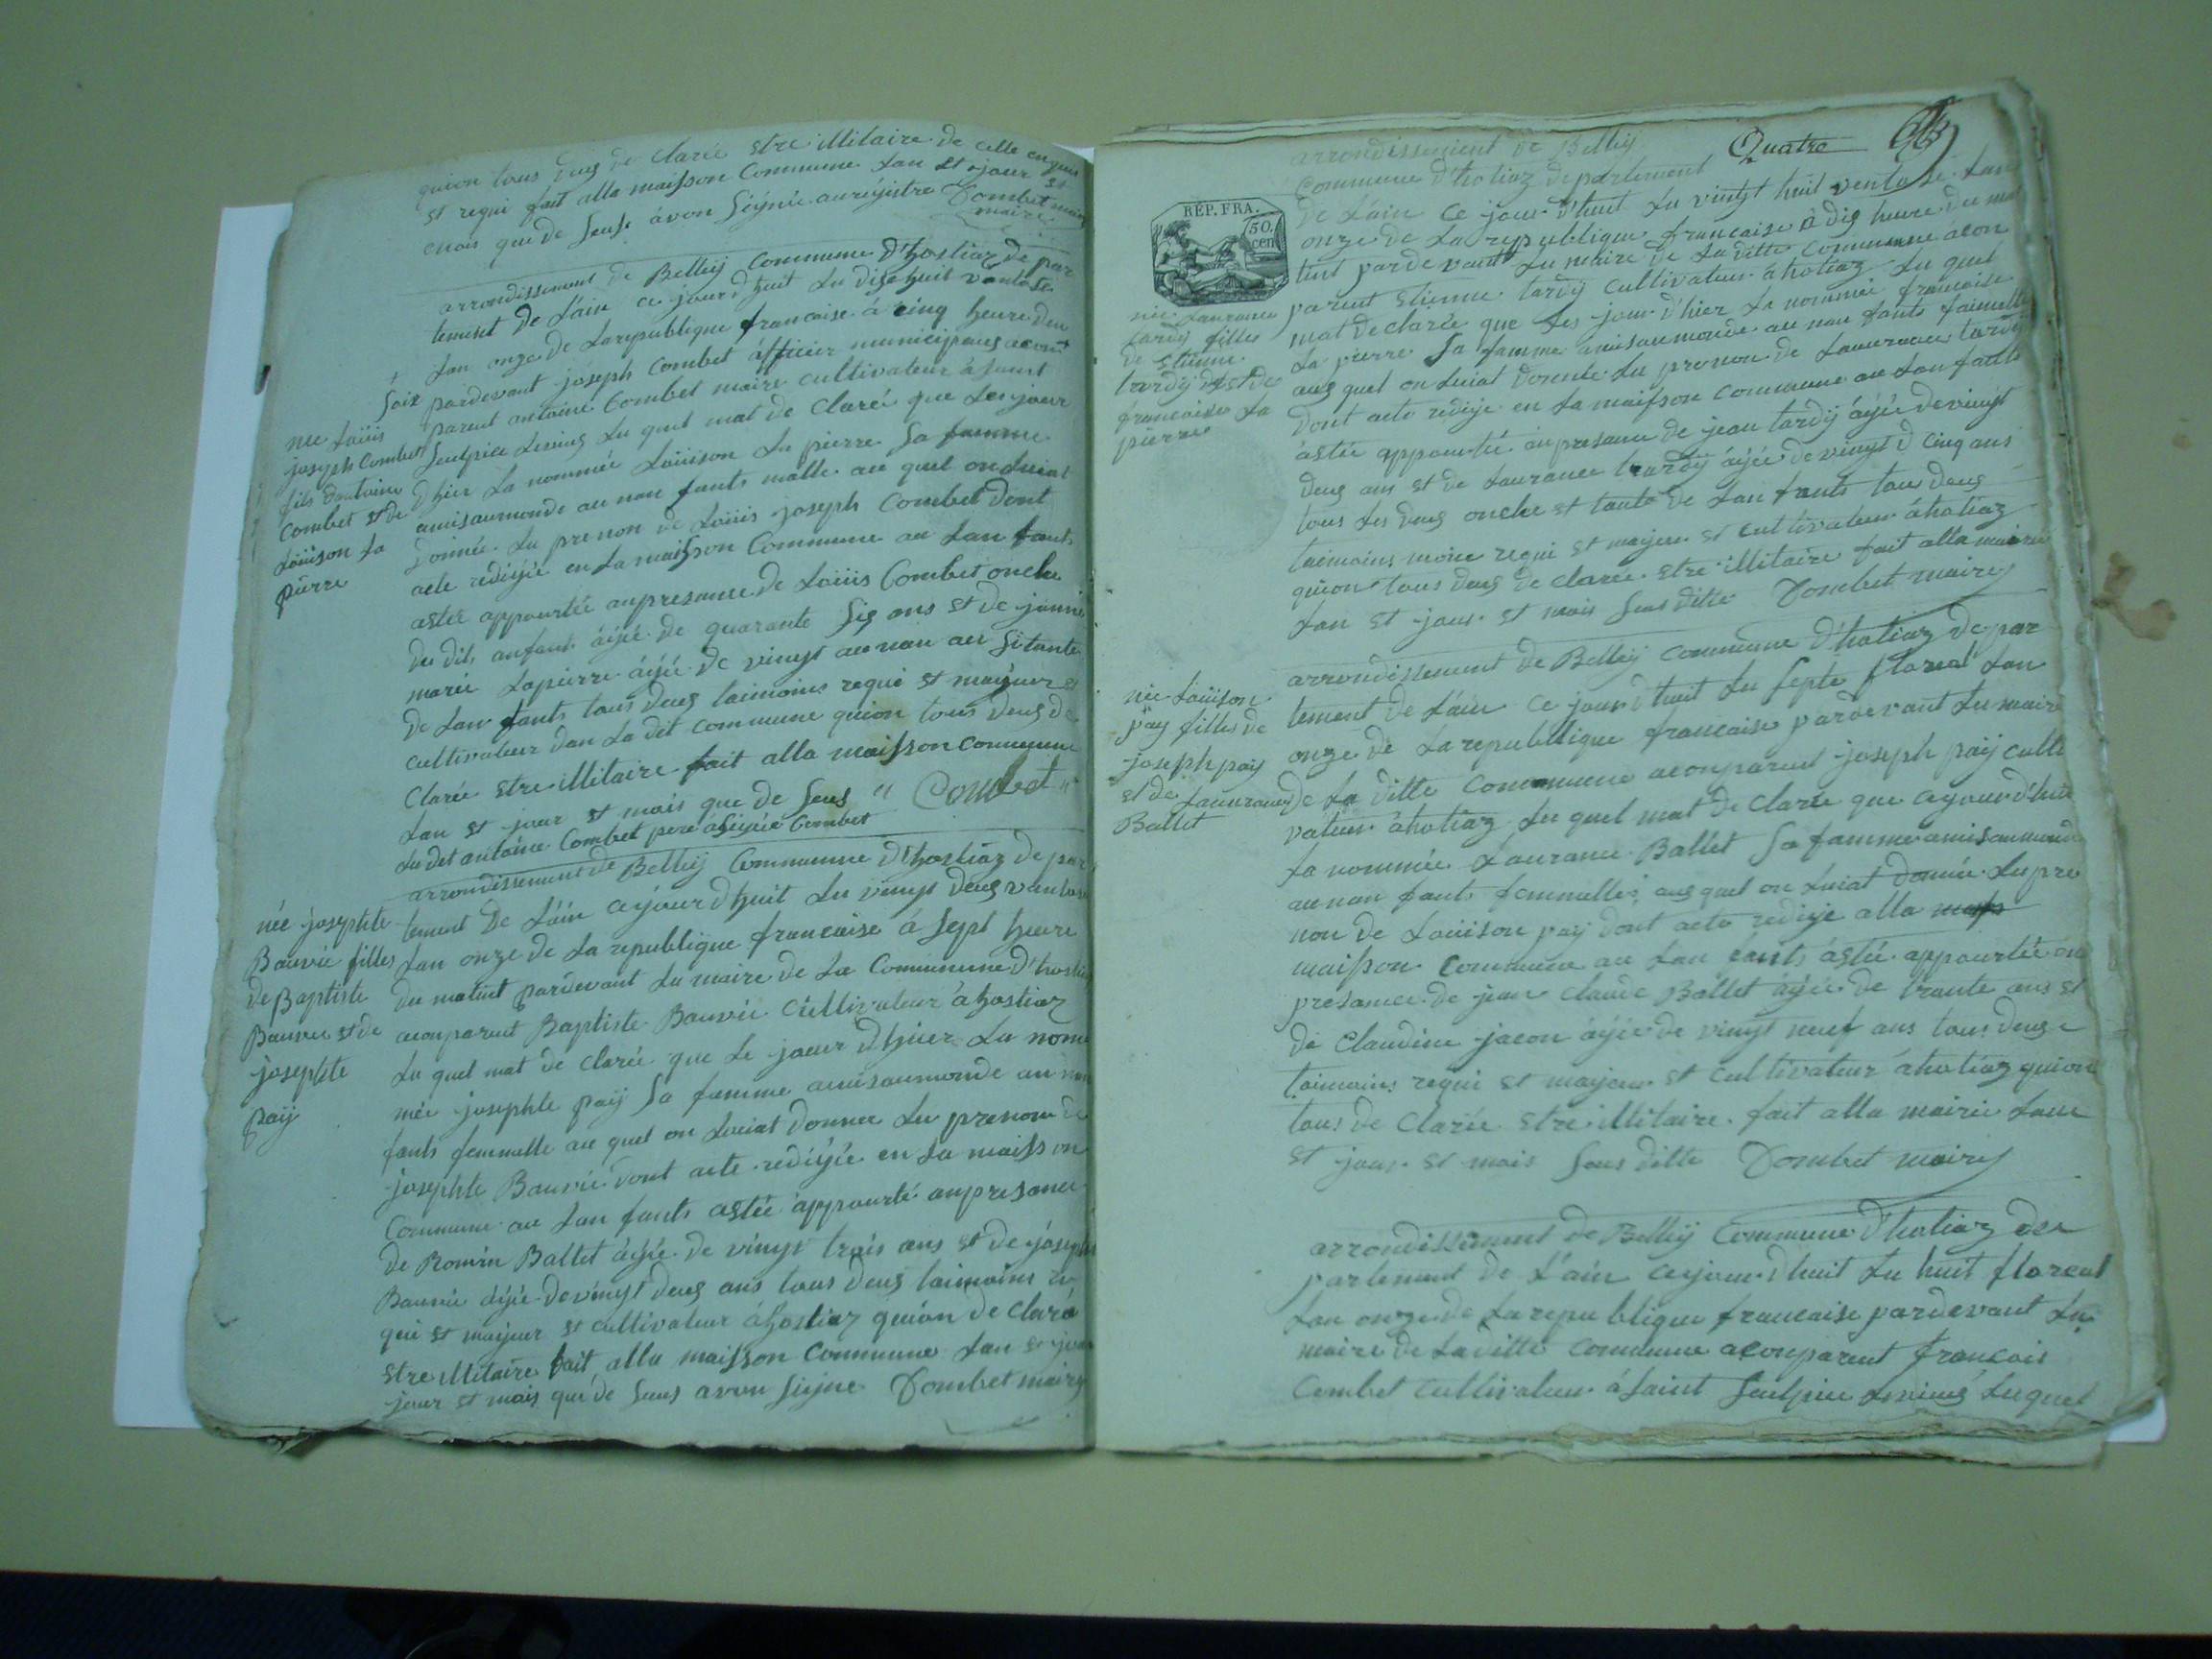 quion tous deus de clarée stre illitaire de celle enquis
st requi fait alla maisson Commune Lan st jour st
mois que de seus avon signée auregistre Combet maire
arrondissement de Belleÿ Commune d'hostiaz depar
tement De Lain ce jourdhuit Lu dixe huit vantose
Lan onze de Larepublique francaise á cinq heure deu
soir pardevant joseph Combet áfficier municipaus acom
parut antoine Combet maire cultivateur á saint
Seulpice Leviens Lu quel mat de Claré que Lesjour
dhier La nommée Loüison La pierre Sa famme
amisaumonde au non fants malle au quel on Luiat
Donnée Lu prenon de Loüis joseph Combet Dont
acte redigée en La maisson Commune au Lan fants
astée appourtée anpresance de Loüis Combet oncle
du dit anfant áÿée de quarante sis ans st de janne
marie Lapierre áÿée de vingt
De Lan fants tous deus taimoins requi st majeur st
cultivateur dan La dit commune quion tous deus de
Clarée stre illitaire fait alla maisson Commune
Lan st jour st mois que de seus Combet
Lu dit antoine Combet pere á signée Combet
nee Loüis
joseph Combet
fils dantoine
Combet st de
Loüison La
pierre
arrondissement de Belleÿ Commune d'hostiaz depar
tement De Láin cejourdhuit Lu vingt deus vantose
Lan onze de La republique francaise á sept heure
du matint pardevant Lu maire de La Commune d'hostiaz
aconparut Baptiste Bauvie cultivateur á hostiaz
Lu quel mat de clarée que Le jour dhier La nom
mée josephte paÿ sa famme amisaumonde au non
fants femmelle au quel on Luiat donnee Lu prenom de
josephte Bauvie dont acte redigée en La maisson
Commune au Lan fants astée appourté anpresance
de Romin Ballet áÿée de vingt trois ans st de josephte
Bauvie áÿée de vingt deus ans tous deus taimoins re
qui st majeur st cultivateur á hostiaz quion de claré
stre illitaire fait alla maisson Commune Lan st jour
jour st mois que de seus avon signe Combet maire
née josephte
Bauvie filles
de Baptiste
Bauvie st de
josephte
paÿ
Quatre
arrondissement de Belleÿ
Commune d'hotiaz departement
de Láin ce jour d'huit Lu vingt huit ventose Lan
onze de La republique francaise á dis heure du ma
tint pardevant Lu maire de La ditte Commune acon
parut stienne tardÿ cultivateur á hotiaz Lu quel
mat declarée que Les jour d'hier La nommée francoise
La pierre Sa famme amisaumonde au non fants faimelle
aus quel on Luiat Donnée Lu prenon de Laurance tardÿ
dont acte redige en La maisson Commune au Lan fants
ástée appourtée anpresance de jean tardÿ áÿée de vingt
deus ans st de Laurance tardÿ áÿée de vingt cinq ans
tous Les deus oncle st tante de Lan fants tous deus
taimoins requi st majeur st cultivateur á hotiaz
quion tous deus de clarée stre illitaire fait alla mairie
Lan st jour st mois seus ditte Combet maire
RÉP. FRA.
50.
cen
née Laurance
tardÿ filles
de stienne
tardÿ st de
francoise La
pierre
arrondissement de Belleÿ commune d'hotiaz depar
tement de Láin ce jour d'huit Lu septe floreal Lan
onze de La republique francaise pardevant Lu maire
de La ditte commune aconparut joseph paÿ culti
vateur á hotiaz Lu quel mat de clarée que cejourd'huit
La nommée Laurance Ballet Sa famme amisaumonde
au non fants femmelle aus quel on Luiat donnée Lu pre
non de Loüison paÿ dont acte redige alla
maisson Commune au Lan fants ástée appourtée en
presance de jean claude Ballet áÿée de trante ans st
de Claudine jacon áÿée de vingt neuf ans tous deus
taimoins requi st majeur st cultivateur á hotiaz quion
tous de Clarée stre illitaire fait alla mairie Lan
st jour st mois seus ditte Combet maire
née Loüison
paÿ filles de
joseph paÿ
st de Laurance
Ballet
arrondissement de Belleÿ Commune d'hotiaz de
partement de L'áin cejour d'huit Lu huit floreal
Lan onze de Larepublique francaise pardevant Lu
maire de La ditte commune aconparut francois
Combet cultivateur á saint Seulpice Leviens Luquel